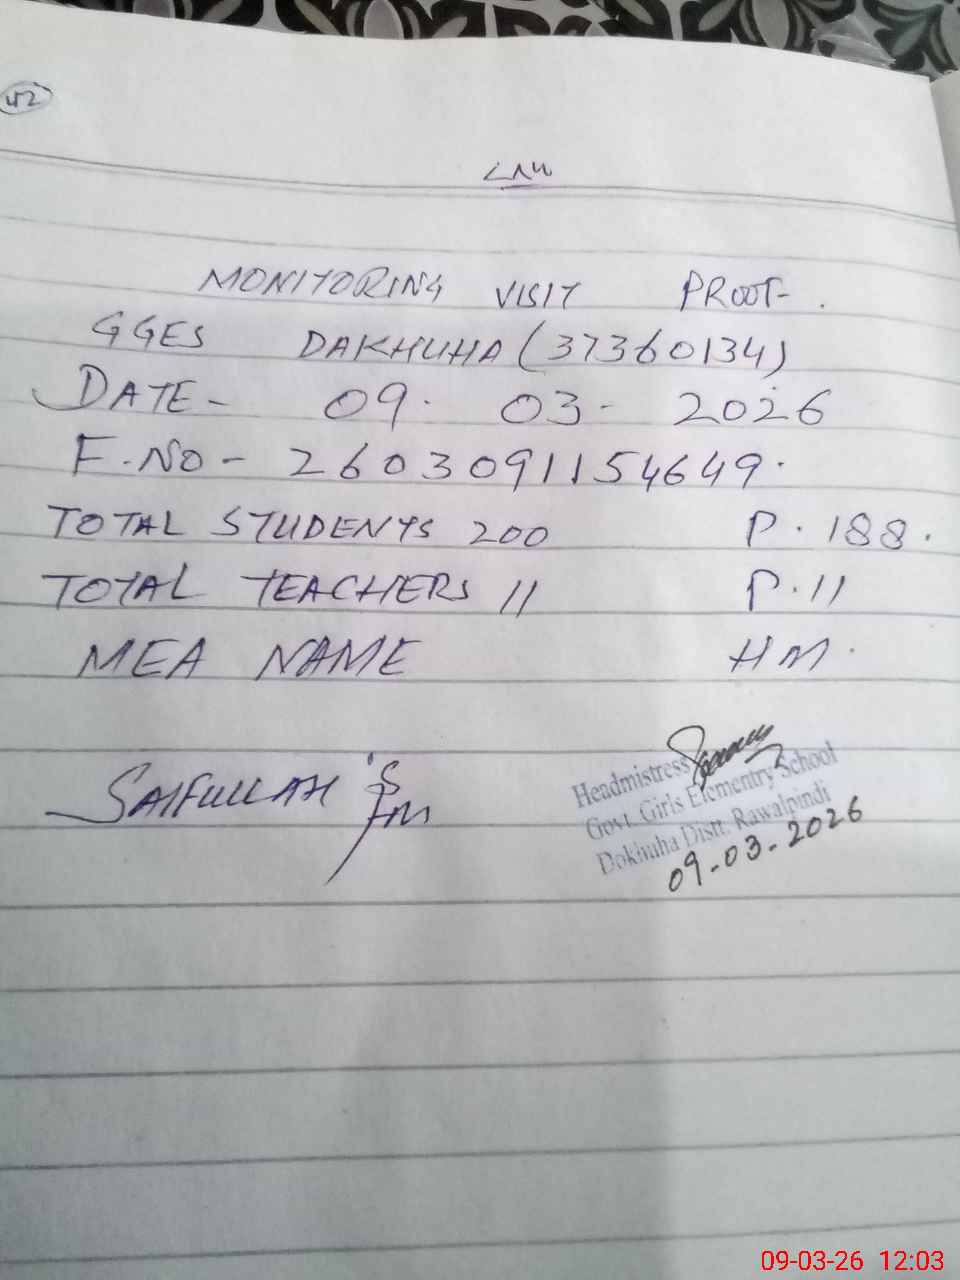 42
MONITORING VISIT PROOF.
GGES DAKHUHA (37360134)
DATE - 09. 03- 2026
F.NO - 2603091154649.
TOTAL STUDENTS 200 P. 188.
TOTAL TEACHERS 11 P. 11
MEA NAME HM.
SAIFULLAH
Headmistress
Govt. Girls Elementry School
Dokhuha Distt. Rawalpindi
09-03-2026
09-03-26 12:03